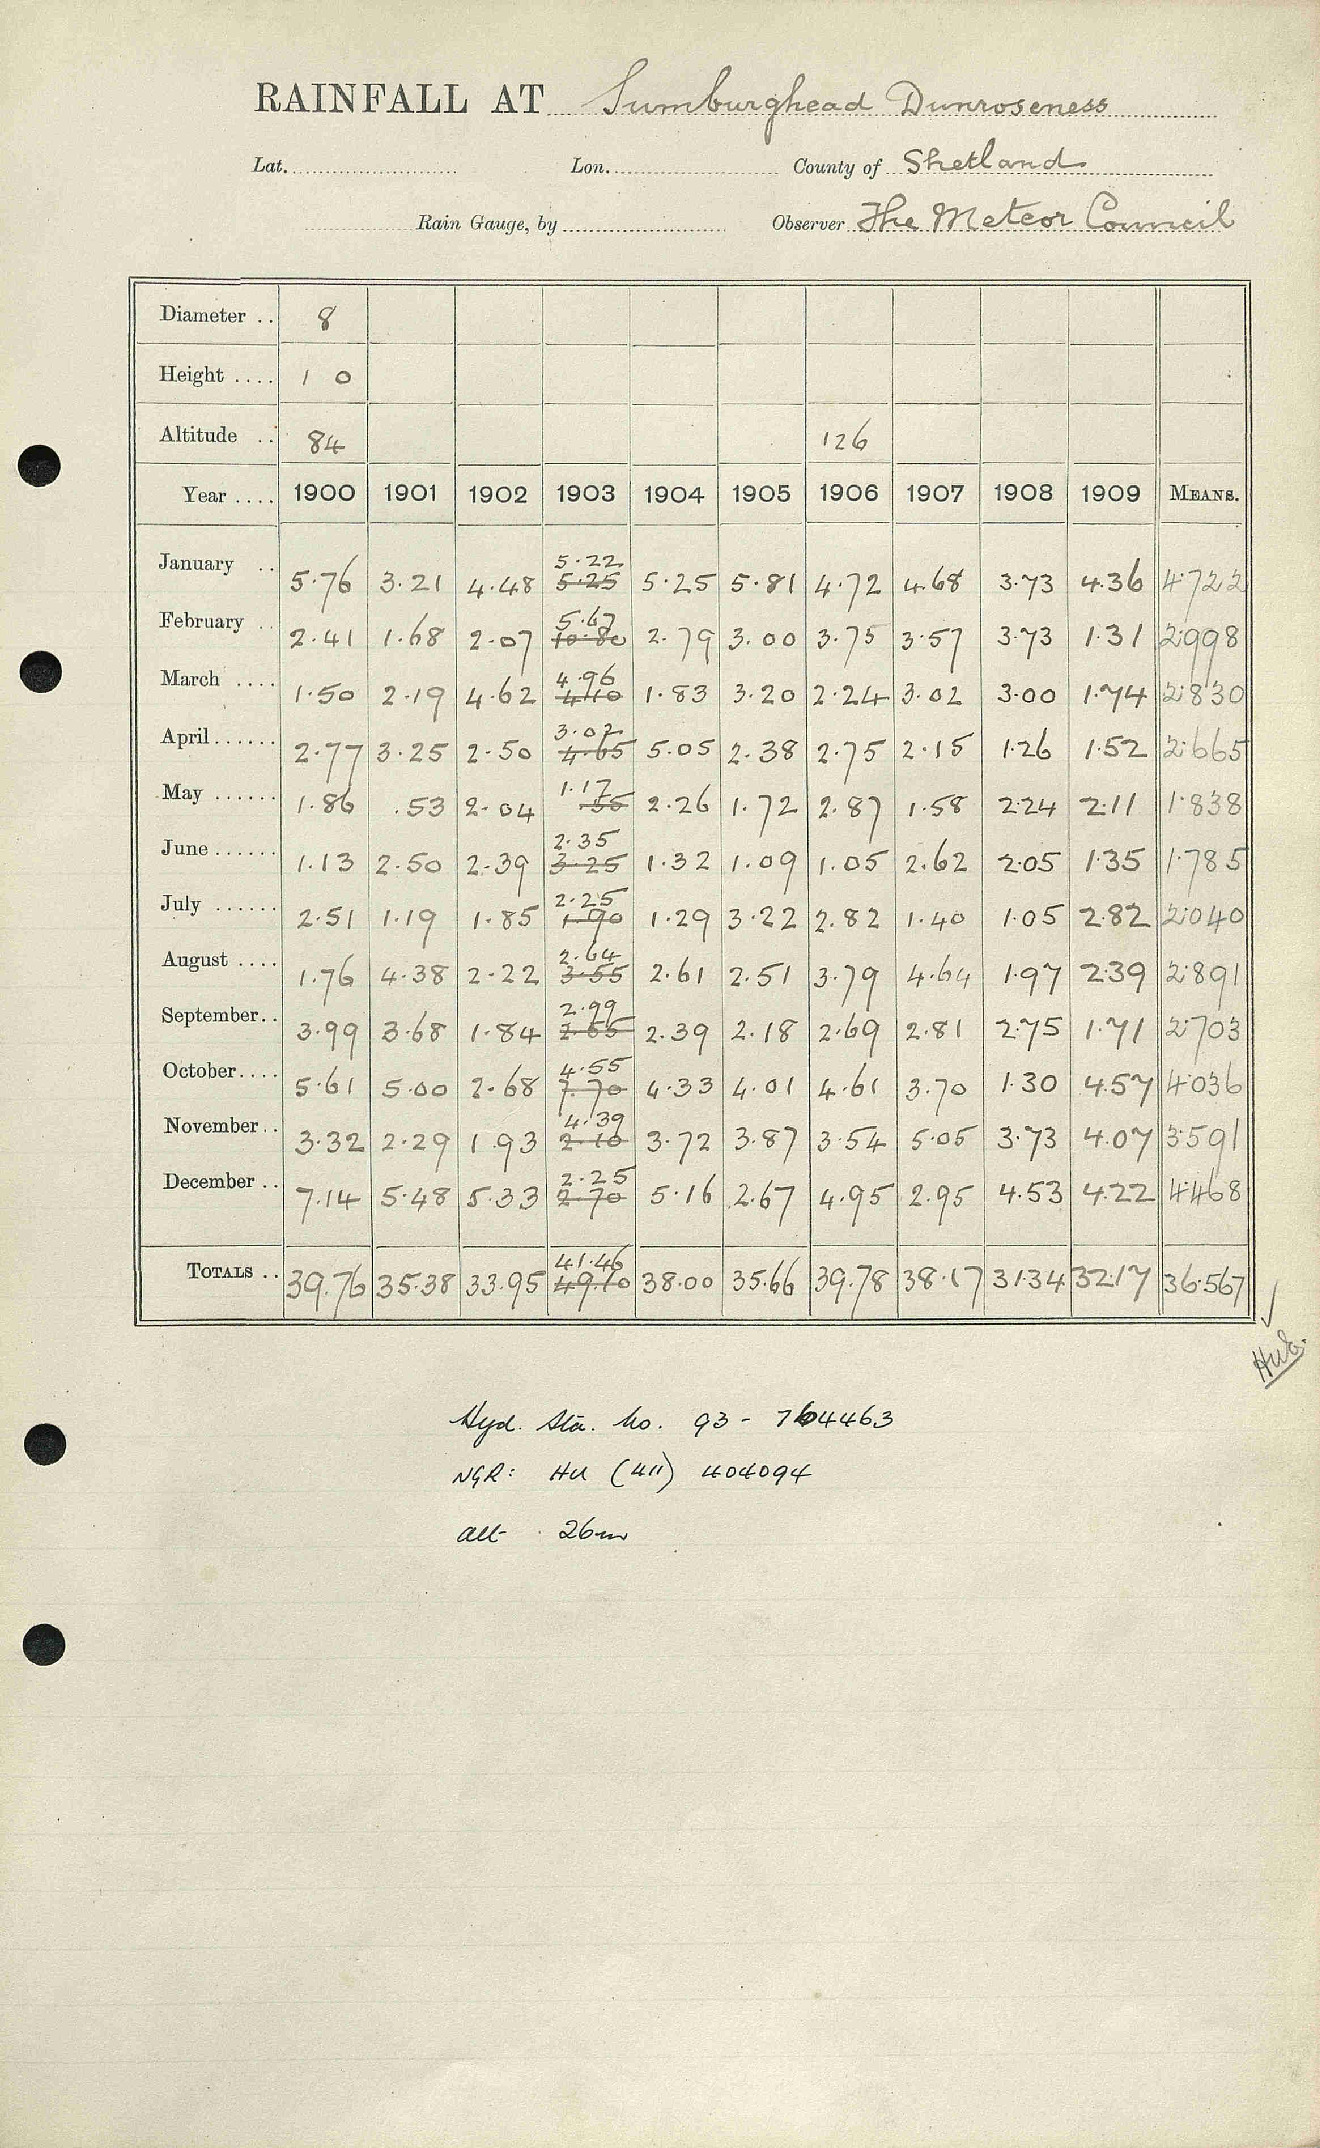 RAINFALL AT Sumburghead Dunroseness
Lat. Lon. County of Shetland
Rain Gauge, by Observer The Meteor Council
Diameter .. 8
Height .... 1 0
Altitude .. 84 126
Year .... 1900 1901 1902 1903 1904 1905 1906 1907 1908 1909 MEANS.
5.22
January .. 5.76 3.21 4.48 5.25 5.25 5.81 4.72 4.68 3.73 4.36 4.722
5.67
February .. 2.41 1.68 2.07 10.80 2.79 3.00 3.75 3.57 3.73 1.31 2.998
4.96
March .... 1.50 2.19 4.62 4.10 1.83 3.20 2.24 3.02 3.00 1.74 2.830
3.02
April...... 2.77 3.25 2.50 4.65 5.05 2.38 2.75 2.15 1.26 1.52 2.665
1.17
May ...... 1.86 .53 2.04 .55 2.26 1.72 2.87 1.58 2.24 2.11 1.838
2.35
June ...... 1.13 2.50 2.39 3.25 1.32 1.09 1.05 2.62 2.05 1.35 1.785
2.25
July ...... 2.51 1.19 1.85 1.90 1.29 3.22 2.82 1.40 1.05 2.82 2.040
2.64
August .... 1.76 4.38 2.22 3.55 2.61 2.51 3.79 4.64 1.97 2.39 2.891
2.99
September.. 3.99 3.68 1.84 2.65 2.39 2.18 2.69 2.81 2.75 1.71 2.703
4.55
October.... 5.61 5.00 2.68 7.70 4.33 4.01 4.61 3.70 1.30 4.57 4.036
4.39
November.. 3.32 2.29 1.93 2.10 3.72 3.87 3.54 5.05 3.73 4.07 3.591
2.25
December .. 7.14 5.48 5.33 2.70 5.16 2.67 4.95 2.95 4.53 4.22 4.468
41.46
TOTALS .. 39.76 35.38 33.95 49.10 38.00 35.66 39.78 38.17 31.34 32.17 36.567
Hyd. Sta. No. 93 - 764463
NGR: HU (411) 404094
alt 26m